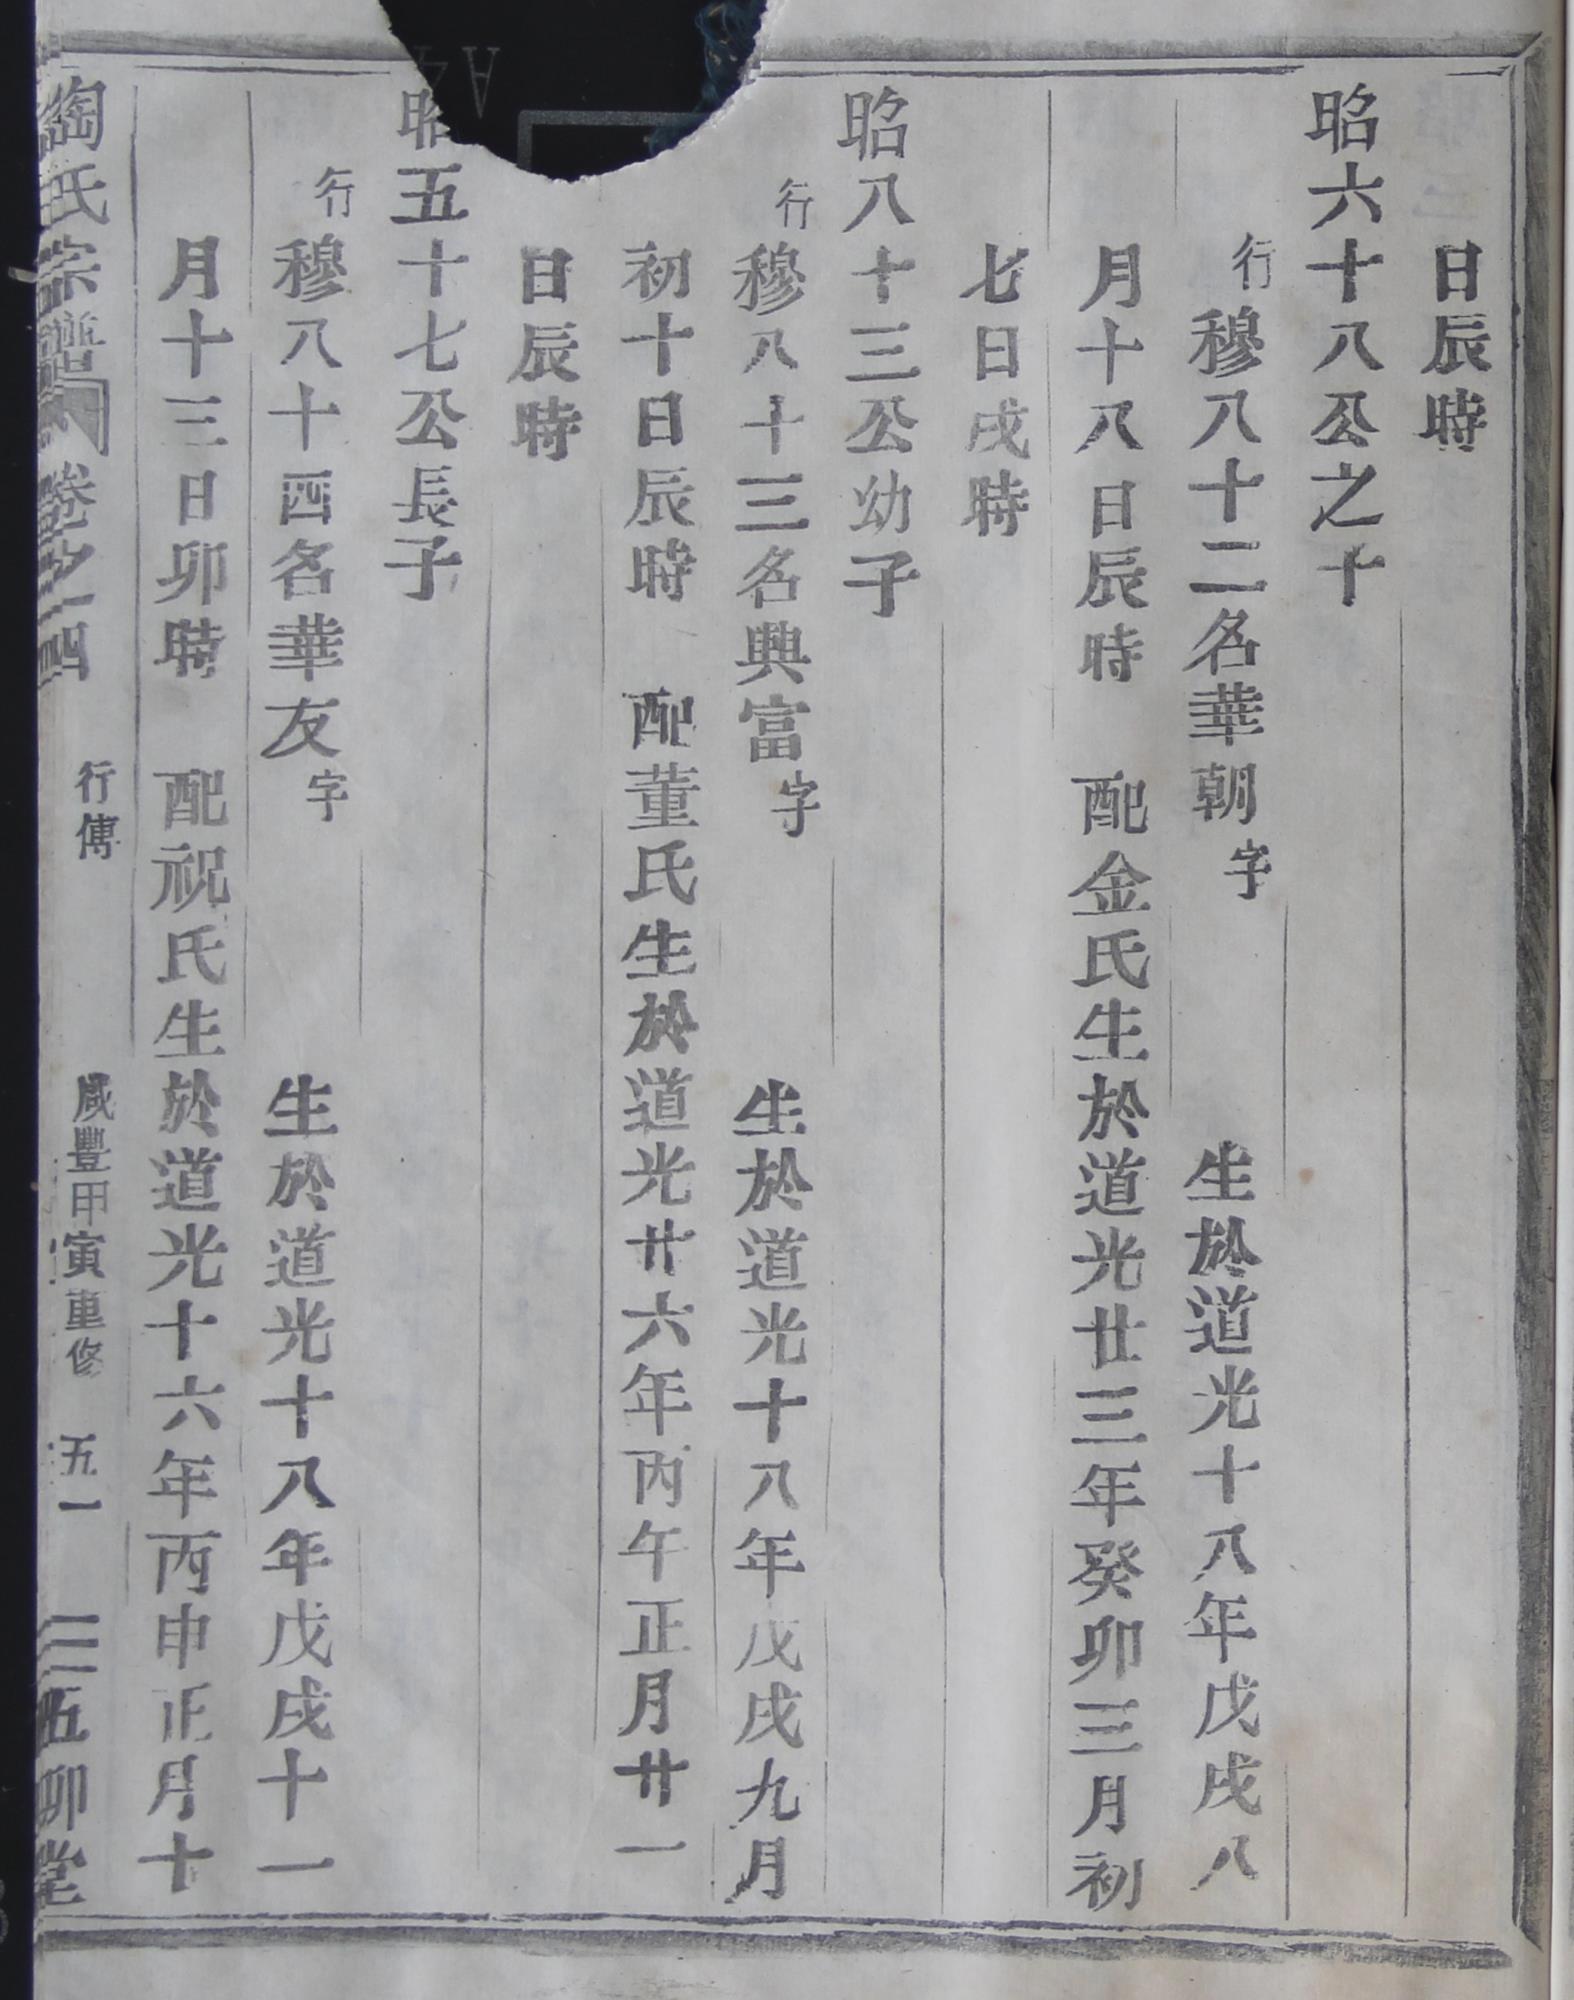 日辰時
昭六十八公之十
行穆八十二名華朝字 生於道光十八年戊戌八
月十八日辰時 配金氏生於道光廿三年癸卯三月初
七日戌時
昭八十三公幼子
行穆八十三名興富字 生於道光十八年戊戌九月
初十日辰時 配董氏生於道光廿六年丙午正月廿一
日辰時
昭五十七公長子
行穆八十四名華友字 生於道光十八年戊戌十一
月十三日卯時 配祝氏生於道光十六年丙申正月十
陶氏宗譜 卷之四 行傳 咸豐甲寅重修 五一 五柳堂